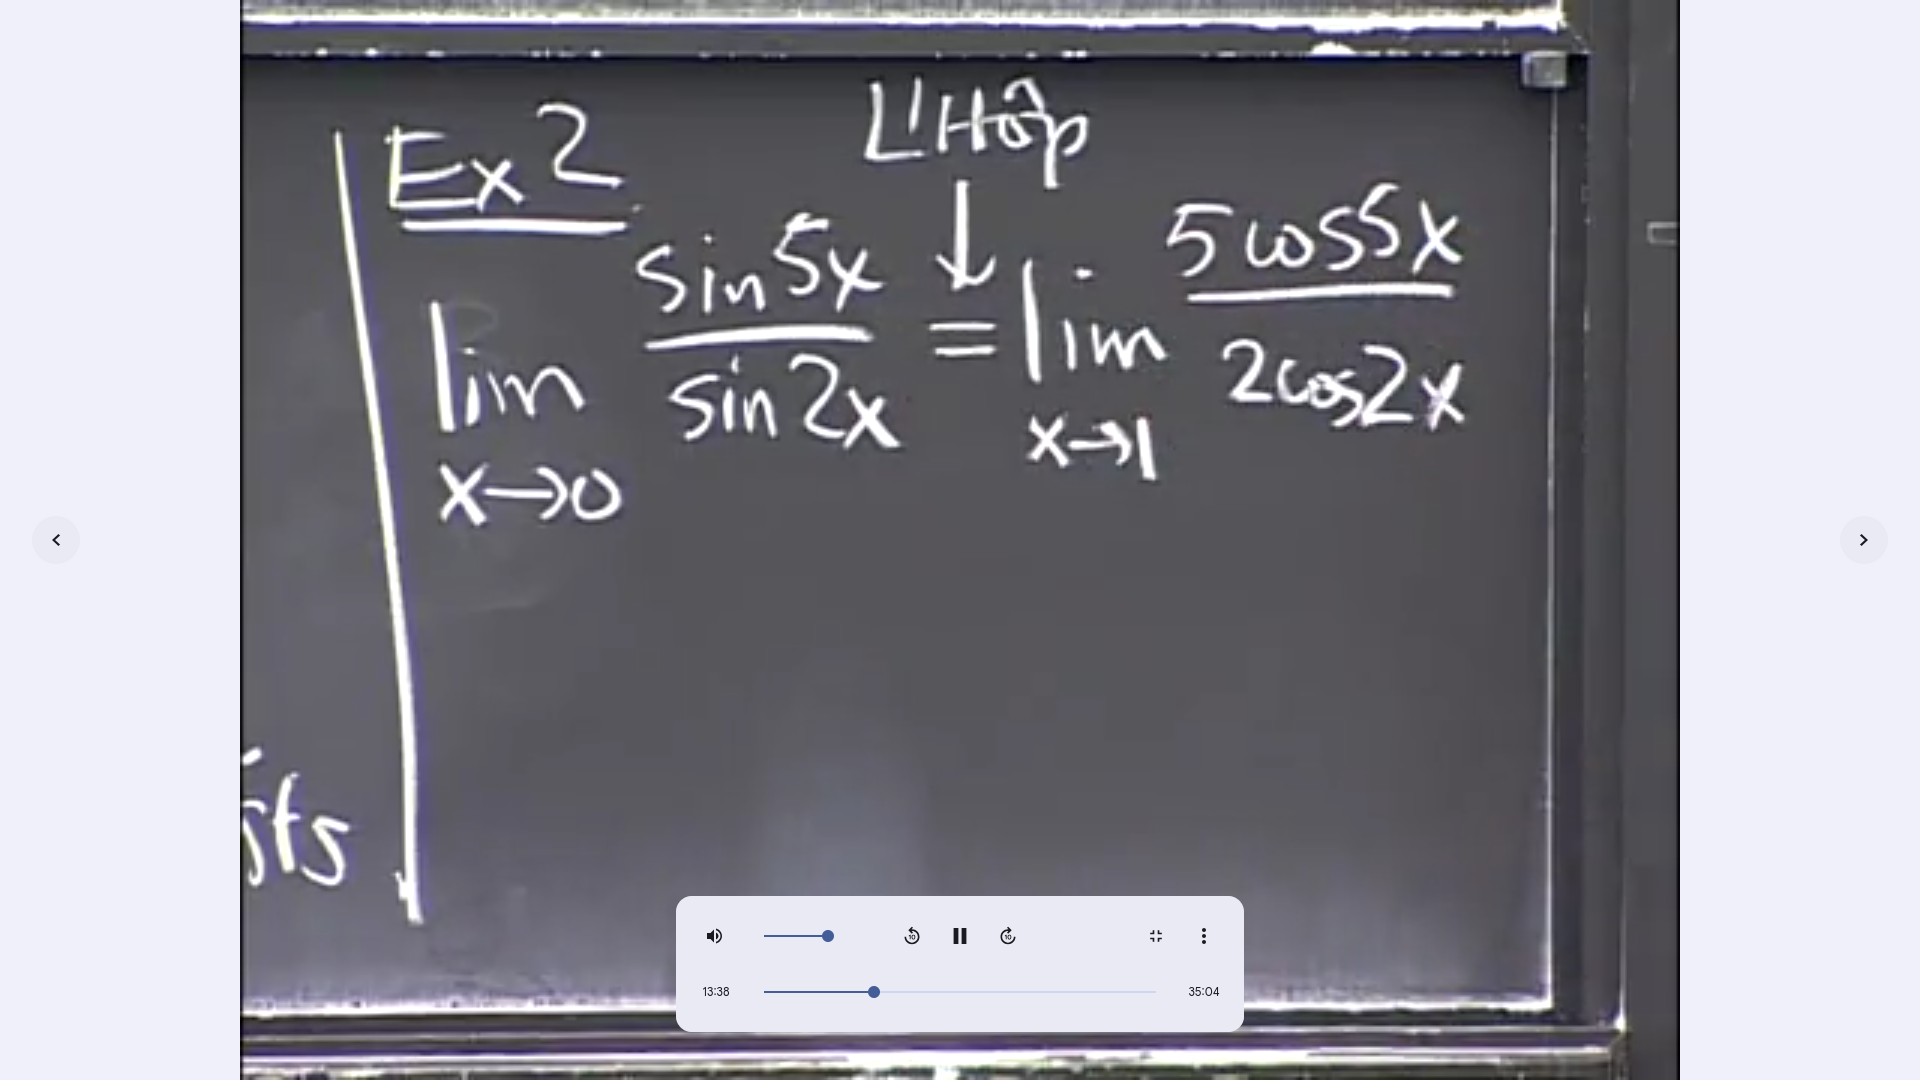 Ex 2
L'Hôp
↓
lim x→0 sin 5x / sin 2x = lim x→1 5 cos 5x / 2 cos 2x
sts
13:38
35:04